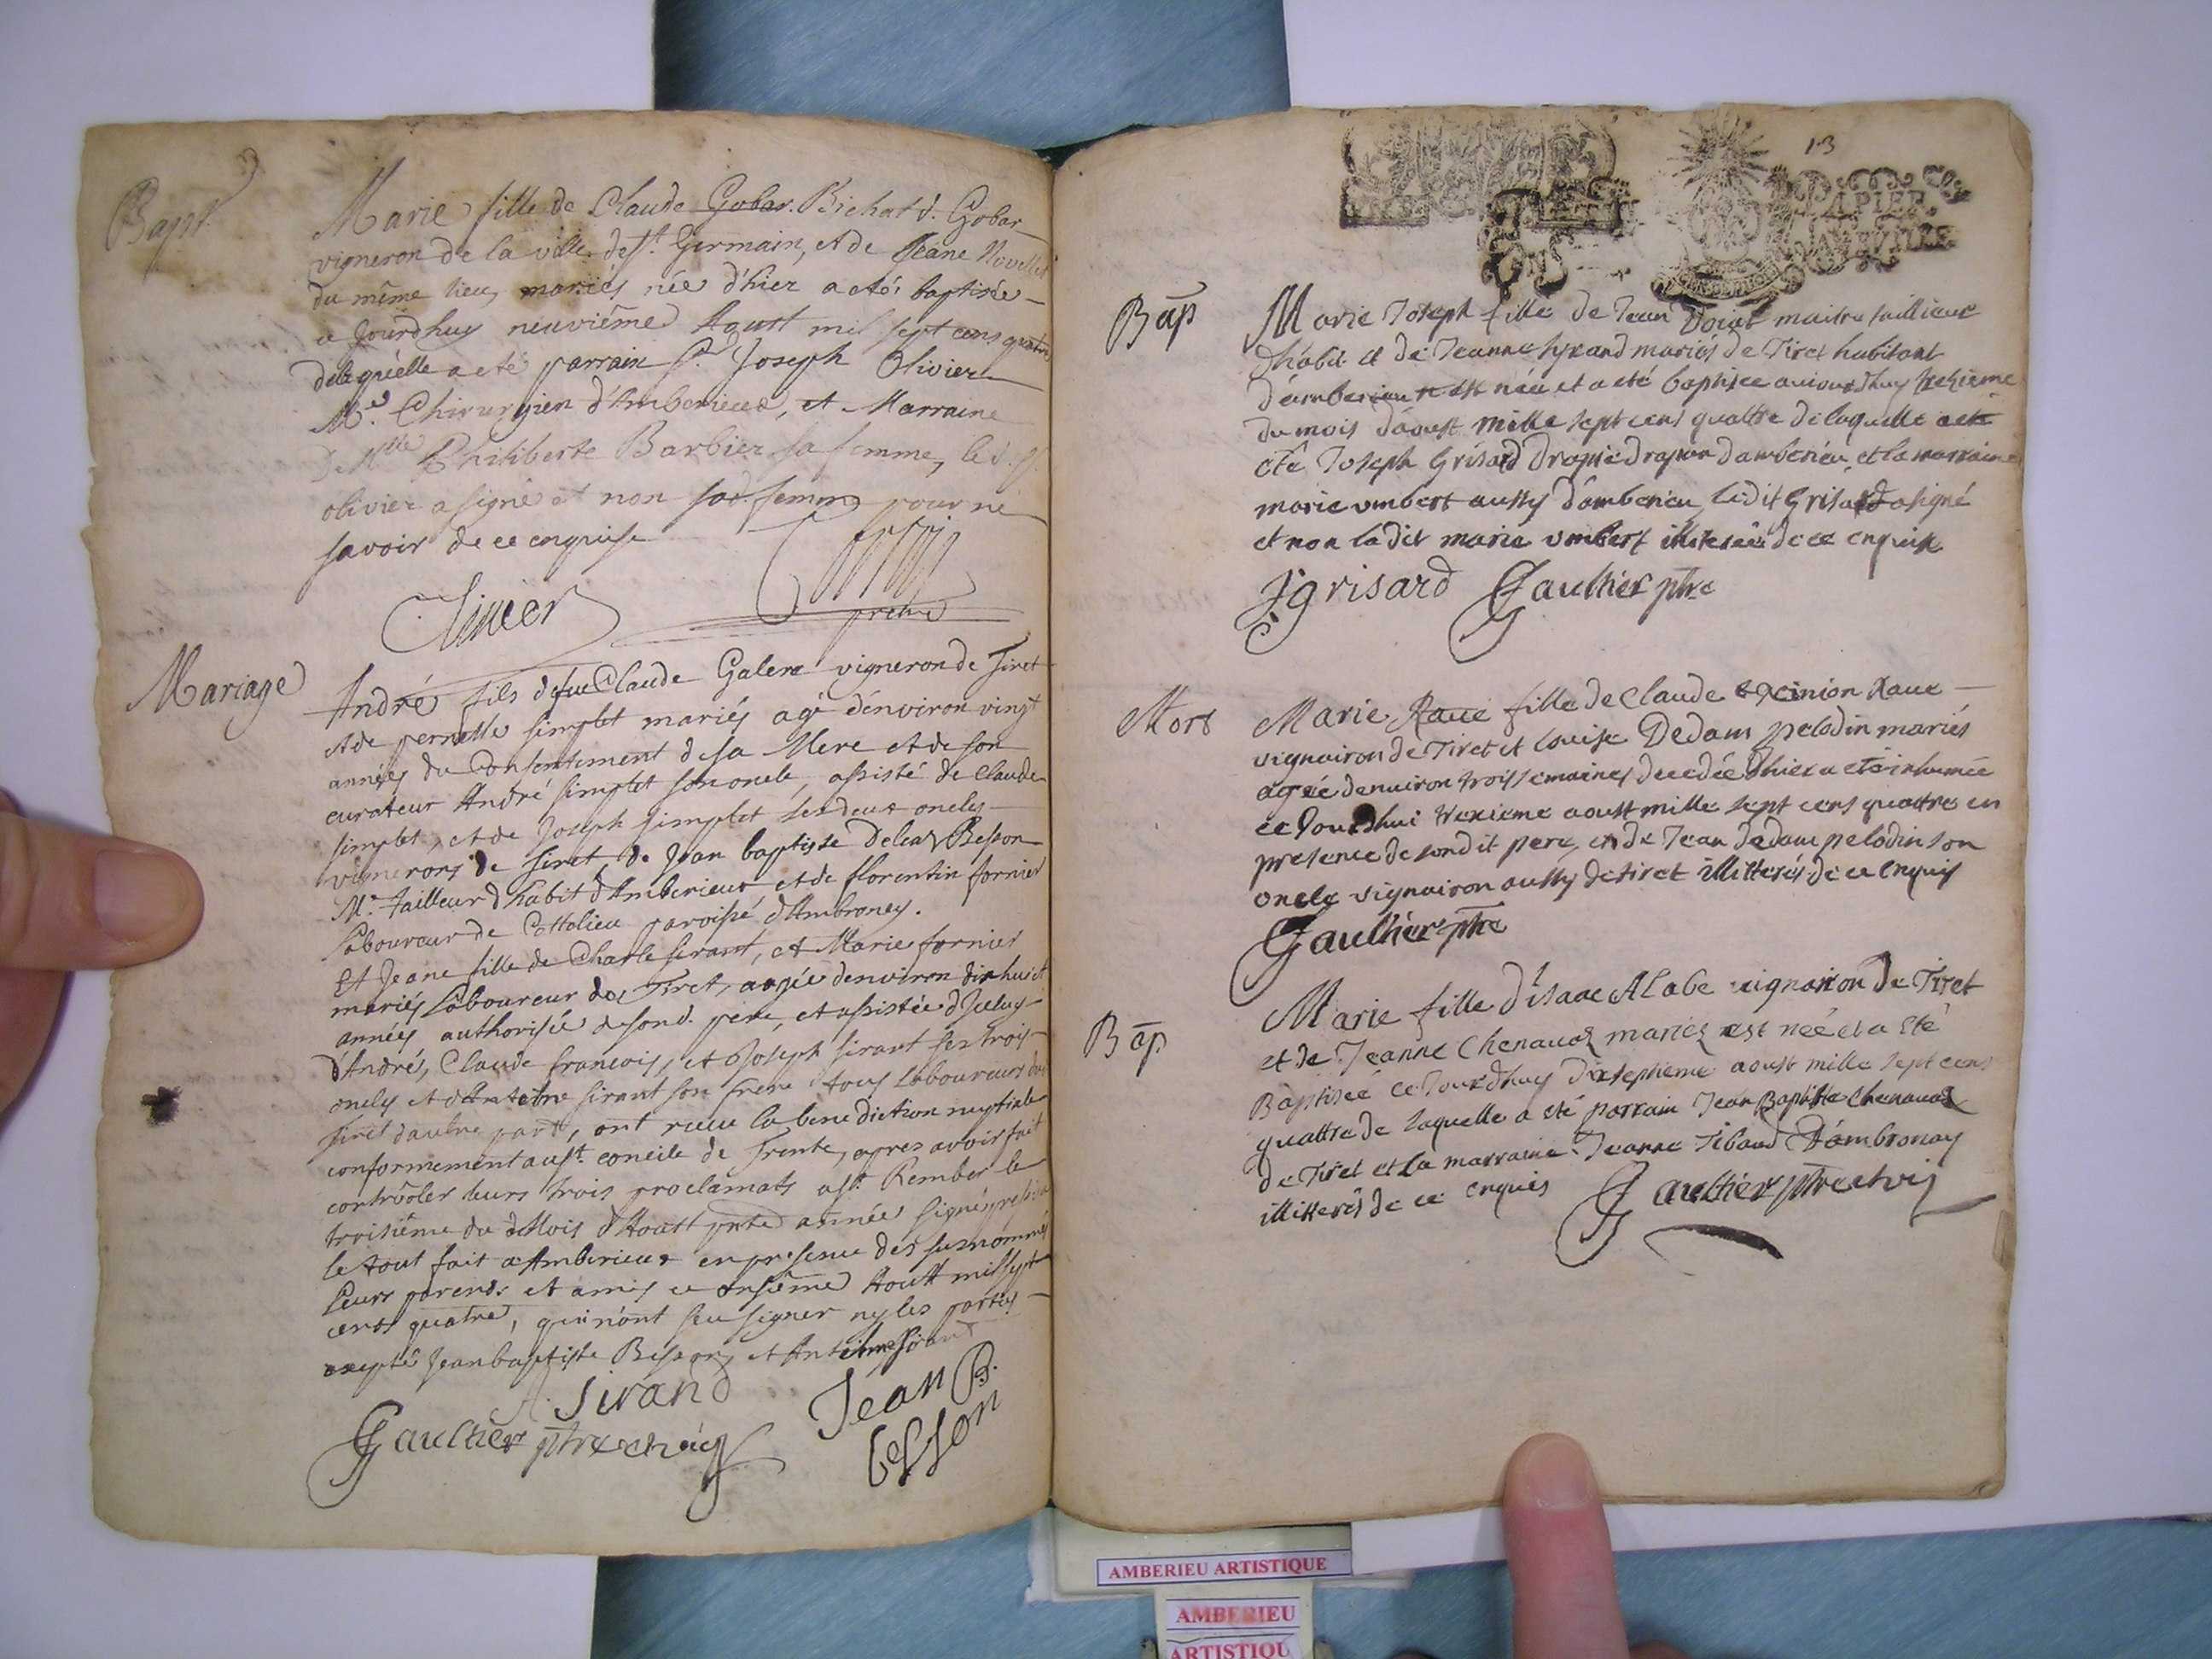 Bapt.
Marie fille de Claude Gobar. Bichat d. Gobar
vigneron de la ville de st. Germain, et de Jeane
du même lieu, mariés née d'hier a eté baptisée
ce jourdhuy neuviême Aoust mil sept cens quatre
delaquelle a eté parrain Sr. Joseph Olivier
Me. Chirurgien d'Amberieux, et Marraine
De Mlle Philiberte Barbier sa femme, led. Sr.
olivier a signé et non sad. femme pour ne
savoir de ce enquise
Olivier
prêtre
Mariage
André fils de feu Claude Galera vigneron de Tiret
et de pernette simplet mariés agé d'environ vingt
années du Consentement de sa Mere et de son
curateur André simplet son oncle, assisté de Claude
simplet, et de Joseph simplet ses deux oncles
vignerons de Tiret de Jean baptiste Besson
Me. tailleur d'habit d'Amberieux et de florentin fornier
laboureur de Cottolieu paroisse d'Ambroney.
Et Jeane fille de Charle sirant, et Marie fornier
mariés Laboureur de Tiret, agée denviron dixhuict
années authorisée de sond. pere, et assistée d'Iceluy
d'André, Claude francois, et Joseph sirant ses trois
oncles et d'Antelme sirant son frere tous laboureurs du
Tiret d'autre part, ont receu la benediction nuptiale
conformement au st. concile de Trente, apres avoir fait
contrôoler leurs trois proclamats a st. Rembert le
troisiême du Mois d'Aoust pnte année signé
le tout fait a Amberieux en presence des susnommés
Leurs parends et amis ce onsiême Aoust mil sept
cens quatre, qui n'ont sceu signer ny les parties
excepté Jean baptiste Besson, et Antelme sirant
A. Sirand
Jean B.
besson
Gaulthier ptre
13
PAPIER
Bap
Marie Joseph fille de Jean Doiat maitre taillieur
d'habit et de Jeanne Syrand mariés de Tiret habitant
d'amberieu est née et a eté baptisée auiourdhuy trezieme
du mois d'aoust mille sept cens quattre de laquelle a eté
eté Joseph Grisard drapier d'amberieu, et la marraine
marie umbert aussy d'amberieu ledit Grisard a signé
et non ladit marie umbert illiterée de ce enquise
J grisard Gaulthier ptre
Mort
Marie Raue fille de Claude Raue
vignairon de Tiret et Louise Dedam pelodin mariés
agée denuiron trois semaines decedée d'hier a eté inhumée
ce Jourdhui trezieme aoust mille sept cens quattre en
presence de sondit pere, et de Jean dedam pelodin son
oncle vignairon aussy de tiret illitterés de ce enquis
Gaulthier ptre
Bap
Marie fille d'isaac ALabe uignairon de Tiret
et de Jeanne Chenauaz mariez est née et a Eté
Baptisée ce Jourdhuy dixseptieme aoust mille sept cens
quattre de laquelle a eté parrain Jean Baptiste Chenauaz
de Tiret et la marraine Jeanne Tibaud d'ambronay
illitterés de ce enquis Gaulthier ptre
AMBERIEU ARTISTIQUE
AMBERIEU
ARTISTIQU